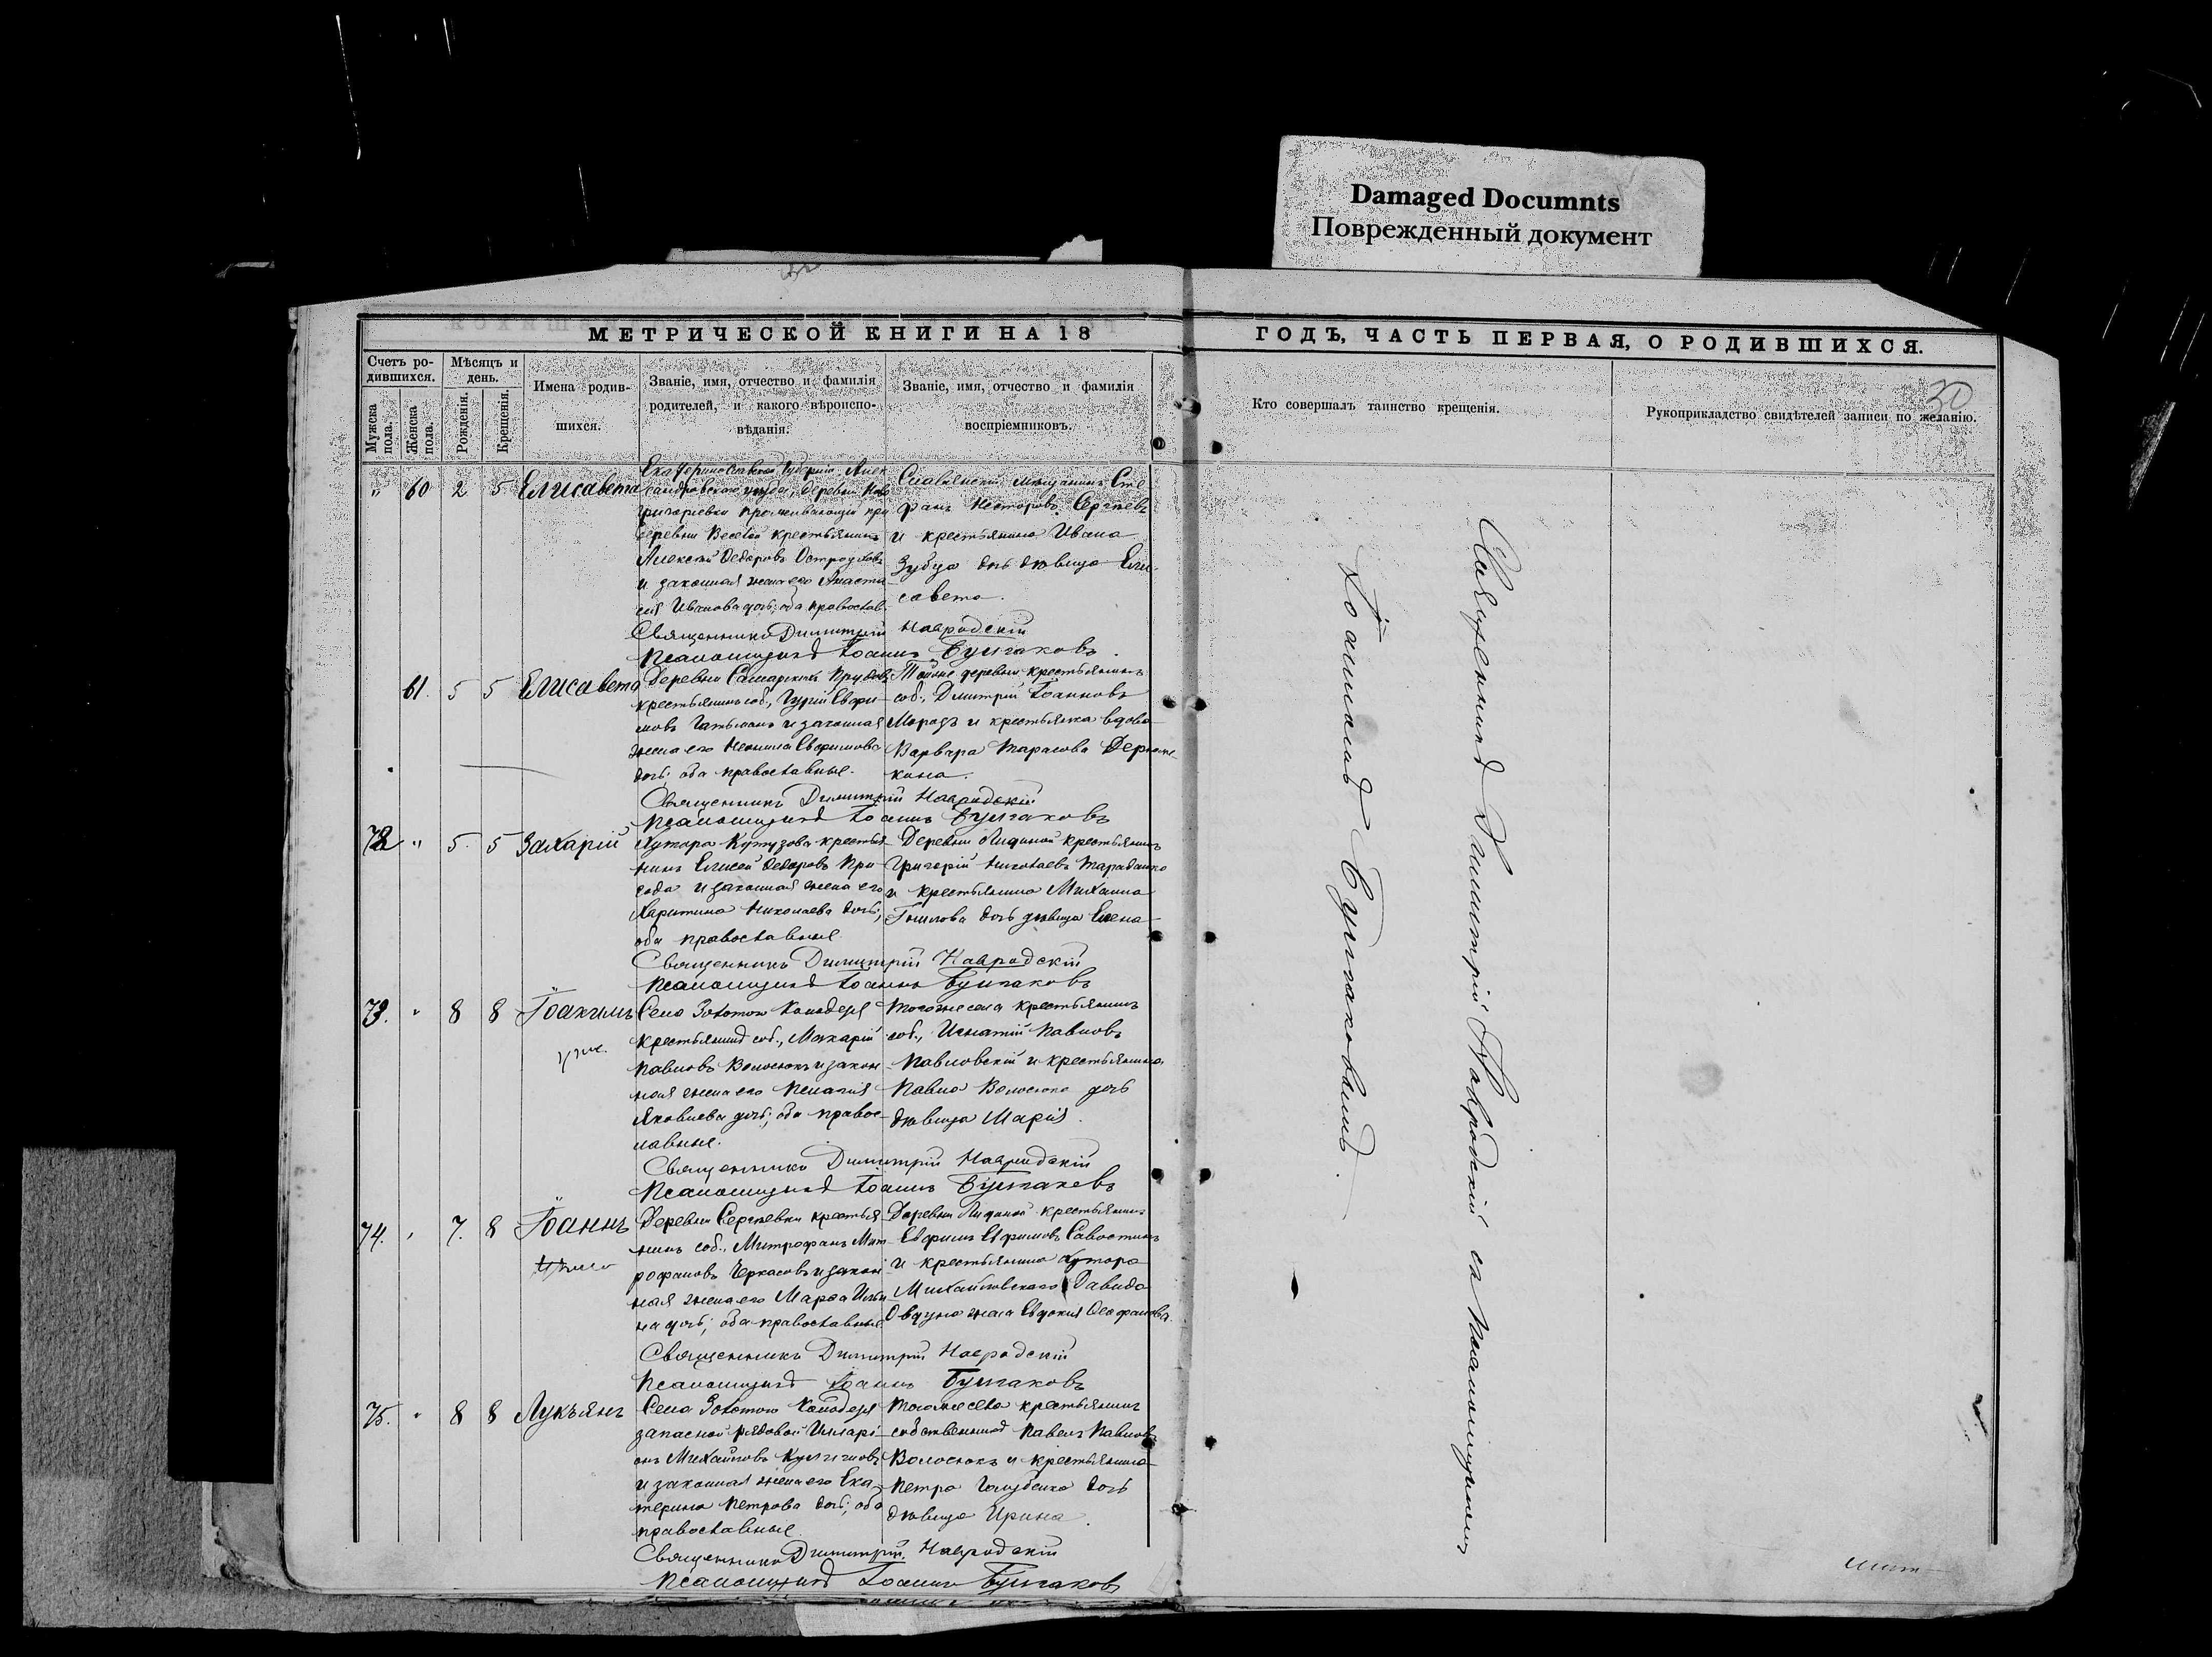 Damaged Documnts
Поврежденный документ
МЕТРИЧЕСКОЙ КНИГИ НА 18
ГОДЪ, ЧАСТЬ ПЕРВАЯ, О РОДИВШИХСЯ.
30
Счетъ ро-
дившихся.
Мужска пола.
Женска пола.
Мѣсяцъ и
день.
Рожденія.
Крещенія.
Имена родив-
шихся.
Званіе, имя, отчество и фамилія
родителей, и какого вѣроиспо-
вѣданія.
Званіе, имя, отчество и фамилія
воспріемниковъ.
Кто совершалъ таинство крещенія.
Рукоприкладство свидѣтелей записи по желанію.
" 60 2 5 Елисавета
Екатеринославской Губерніи Алек
сандровскаго уѣзда, деревни Ново
григорьевки проживающій при
деревни Веселой крестьянинъ
Алексѣй Ѳедоровъ
и законная жена его Анаста
сія Иванова дочь; оба православ.
Славянскій мѣщанинъ Сте
фанъ Несторовъ Сергѣевъ
и крестьянина Ивана
Зубца дочь дѣвица Ели-
савета.
Священникъ Димитрій Навродскій
Псаломщикъ Іоаннъ Булгаковъ.
61. 5 5 Елисавета
Деревни Самарскихъ Прудовъ
крестьянинъ соб., Гурій Евфи-
мовъ и законная
жена его Неонила Евфимова
дочь; оба православные.
Тойже деревни крестьянинъ
соб., Димитрій Іоанновъ
Морозъ и крестьянка вдова
Варвара Тарасова
Священникъ Димитрій Навродскій
Псаломщикъ Іоаннъ Булгаковъ
72 " 5. 5 Захарій
Хутора Кутузова крестья
нинъ Елисей Ѳедоровъ При
сада и законная жена его
Харитина Николаева дочь;
оба православные
Деревни Лидиной крестьянинъ
Григорій Николаевъ
и крестьянина Михаила
Гнилова дочь дѣвица Елена
Священникъ Димитрій Навродскій
Псаломщикъ Іоаннъ Булгаковъ
73. " 8 8 Іоакимъ
Села Золотого Колодезя
крестьянинъ соб., Макарій
Павловъ Волосюкъ и закон
ная жена его Пелагія
Яковлева дочь; оба правос-
лавные.
Тогоже села крестьянинъ
соб., Игнатій Павловъ
Павловскій и крестьянина
Павла Волосюка дочь
дѣвица Марія.
Священникъ Димитрій Навродскій
Псаломщикъ Іоаннъ Булгаковъ
74. " 7. 8 Іоаннъ
Деревни Сергѣевки крестья
нинъ соб., Митрофанъ Мит
рофановъ Черкасовъ и закон
ная жена его Марѳа Ильи
на дочь; оба православные
Деревни Лидиной крестьянинъ
Евфимъ Ефимовъ Савостинъ
и крестьянина хутора
Михайловскаго Давида
Овдуна жена Евдокія
Священникъ Димитрій Навродскій
Псаломщикъ Іоаннъ Булгаковъ
75. " 8 8 Лукьянъ
Села Золотого Колодезя
запасной рядовой Илларі-
онъ Михайловъ
и законная жена его Ека
терина Петрова дочь; оба
православные.
Тогоже села крестьянинъ
собственникъ Павелъ Павловъ
Волосюкъ и крестьянина
Петра Голубенка дочь
дѣвица Ирина.
Священникъ Димитрій Навродскій
Псаломщикъ Іоаннъ Булгаковъ
Священникъ Димитрій Навродскій съ псаломщикомъ
Іоанномъ Булгаковымъ.